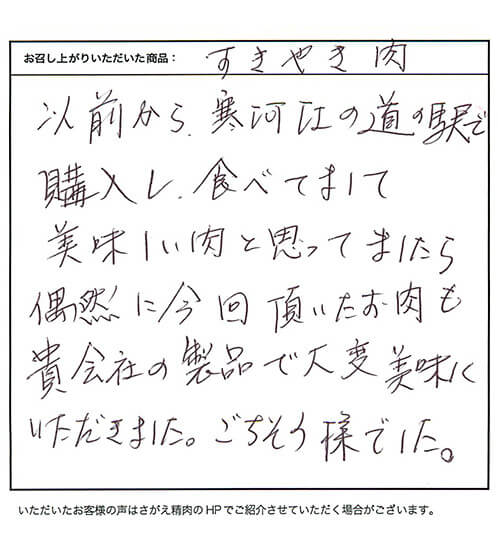 お召し上がりいただいた商品： すきやき肉
以前から、寒河江の道の駅で
購入し、食べてまして
美味しい肉と思ってましたら
偶然に今回頂いたお肉も
貴会社の製品で大変美味に
いただきました。ごちそう様でした。
いただいたお客様の声はさがえ精肉のHPでご紹介させていただく場合がございます。